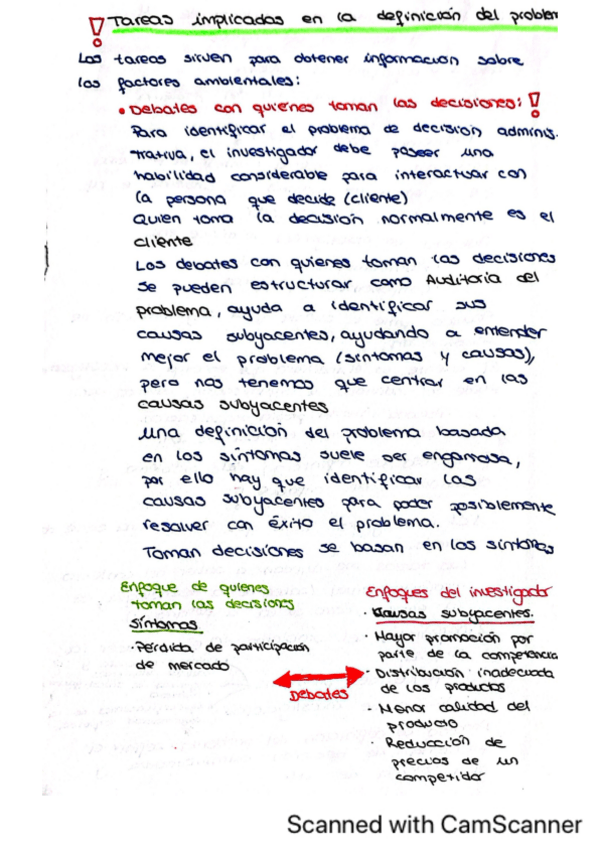 ! Tareas implicadas en la definición del problem
Las tareas sirven para obtener información sobre
los factores ambientales:
• Debates con quienes toman las decisiones: !
Para identificar el problema de decisión adminis-
trativa, el investigador debe poseer una
habilidad considerable para interactuar con
la persona que decide (cliente)
Quien toma la decisión normalmente es el
cliente
Los debates con quienes toman las decisiones
se pueden estructurar como Auditoría del
problema, ayuda a identificar sus
causas subyacentes, ayudando a entender
mejor el problema (síntomas y causas),
pero nos tenemos que centrar en las
causas subyacentes
una definición del problema basada
en los síntomas suele ser engañosa,
por ello hay que identificar las
causas subyacentes para poder posiblemente
resolver con éxito el problema.
Toman decisiones se basan en los síntomas
Enfoque de quienes
toman las decisiones
Síntomas
· Pérdida de participación
de mercado
Debates
Enfoques del investigador
· Causas subyacentes.
· Mayor promoción por
parte de la competencia
· Distribución inadecuada
de los productos
· Menor calidad del
producto
· Reducción de
precios de un
competidor
Scanned with CamScanner